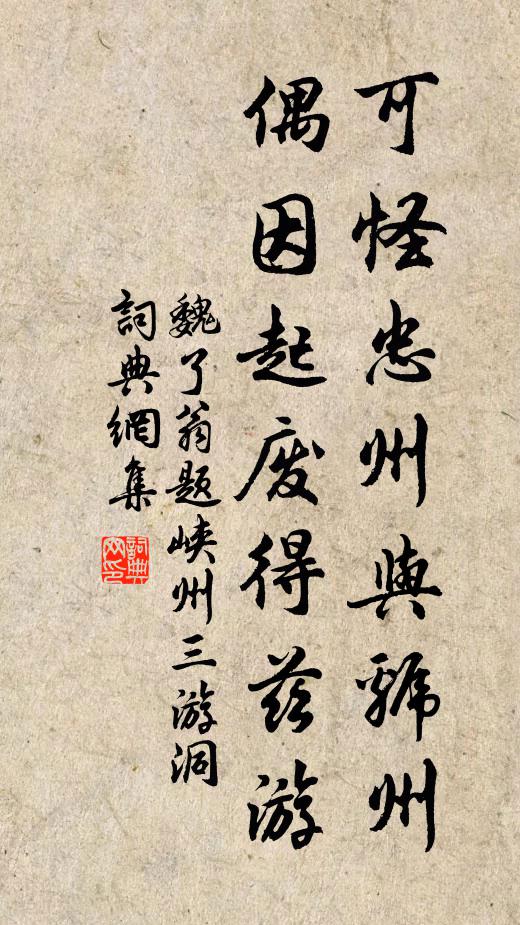 可怪忠州與虢州
偶因起废得茲游
魏了翁题峽州三游洞
詞典網集
詞典網印